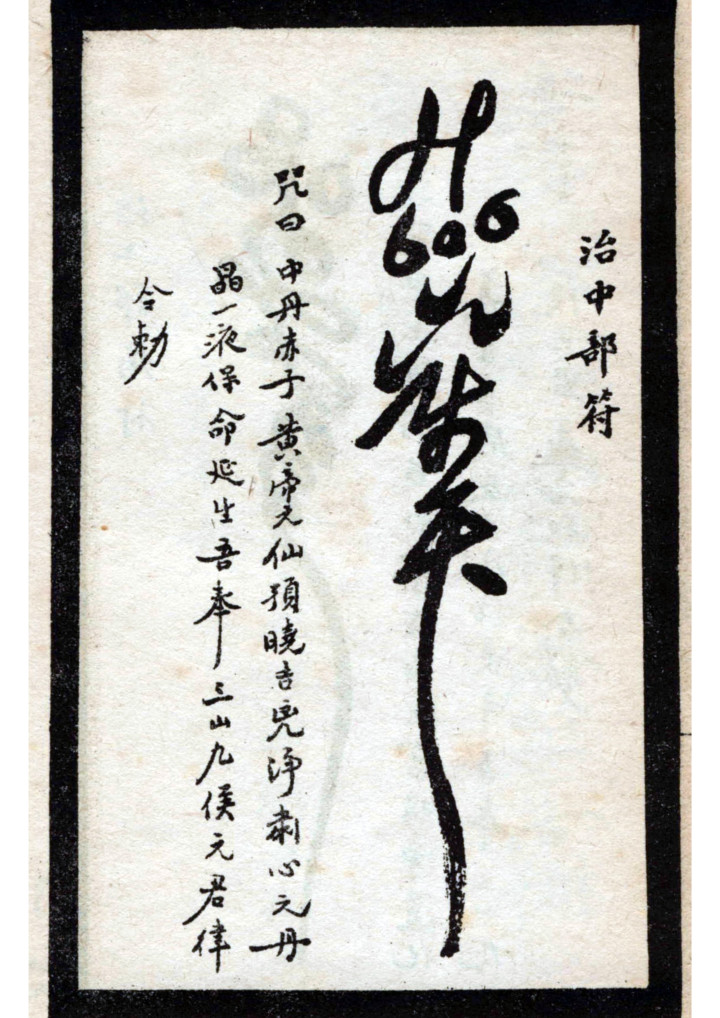 治中部符
咒曰中丹赤子黃帝元仙預曉吉兇淨肅心元丹
晶一液保命延生吾奉三山九侯元君律
令勅